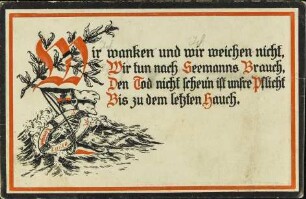 Wir wanken und wir weichen nicht,
Wir tun nach Seemanns Brauch,
Den Tod nicht scheun ist unsre Pflicht
Bis zu dem letzten Hauch.